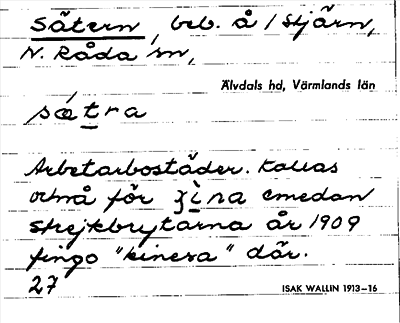 Sätern, beb. å / Stjärn,
N. Råda sn,
Älvdals hd, Värmlands län
sǽtra
Arbetarbostäder. Kallas
också för
emedan
strejkbrytarna år 1909
fingo "kinesa" där.
27
ISAK WALLIN 1913–16